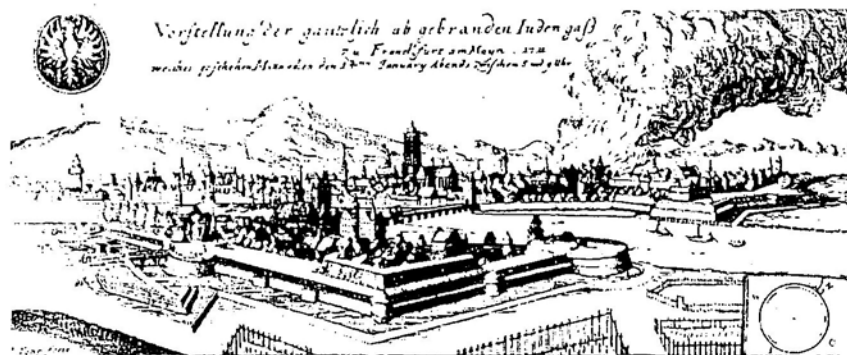 Vorstellung der gäntzlich ab gebranden Juden gaß
zu Franckfurt am Mayn. 1711
welches geschehen den 14ten January Abends Zwischen 8 und 9 Uhr